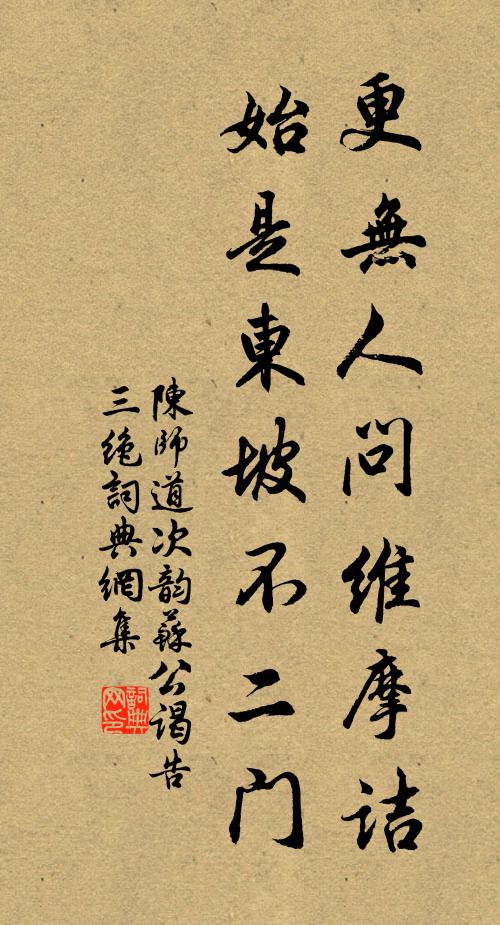 更無人問維摩詰
始是東坡不二門
陳師道次韵蘇公謁告
三絶詞典網集
詞典
网印